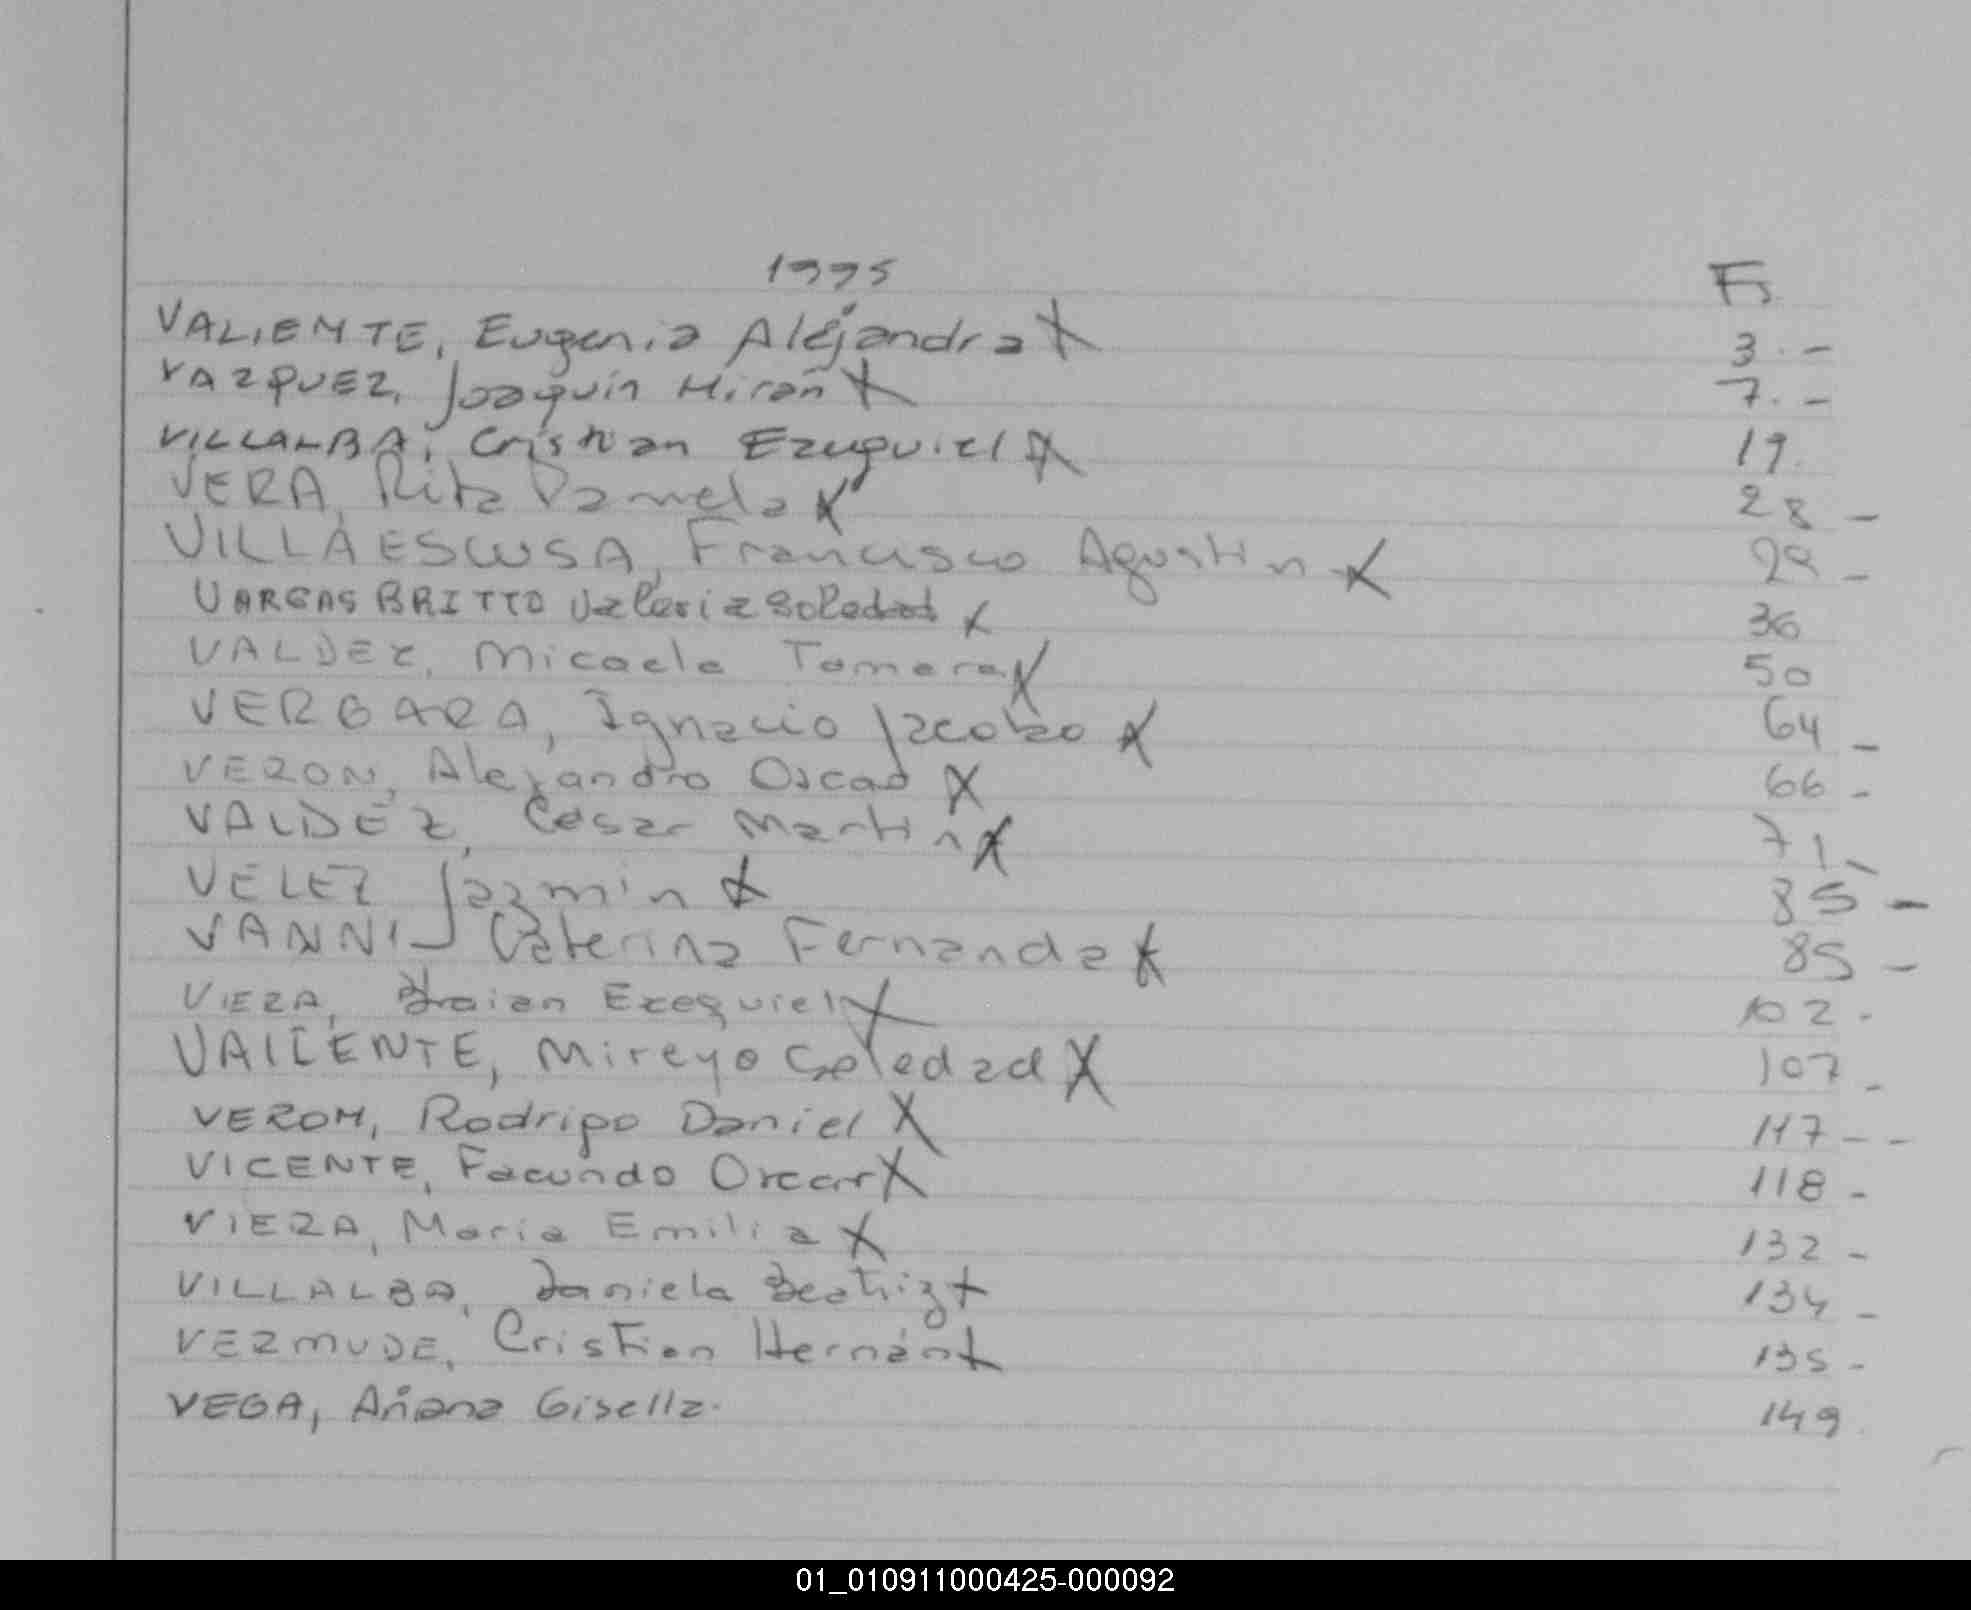 1995 Fs
VALIENTE, Eugenia Alejandra X 3. -
VAZQUEZ, Joaquín X 7. -
VILLALBA, Cristian Ezequiel X 19.
VERA, Rita Pamela X 28 -
VILLAESCUSA, Francisco Agustin X 29 -
VARGAS BRITTO Valeria Soledad X 36
VALDEZ, Micaela Tamara X 50
VERGARA, Ignacio Jacobo X 64 -
VERON, Alejandro Oscar X 66 -
VALDEZ, Cesar Martin X 71 -
VELEZ Jazmin X 85 -
VANNI Caterina Fernanda X 85 -
VIERA, Braian Exequiel X 102 -
VAILENTE, Mireya Soledad X 107 -
VERON, Rodrigo Daniel X 117 - -
VICENTE, Facundo Oscar X 118 -
VIERA, Maria Emilia X 132 -
VILLALBA, Daniela Beatriz X 134 -
VERMUDE, Cristian Hernán X 135 -
VEGA, Gisella. 149.
01_010911000425-000092